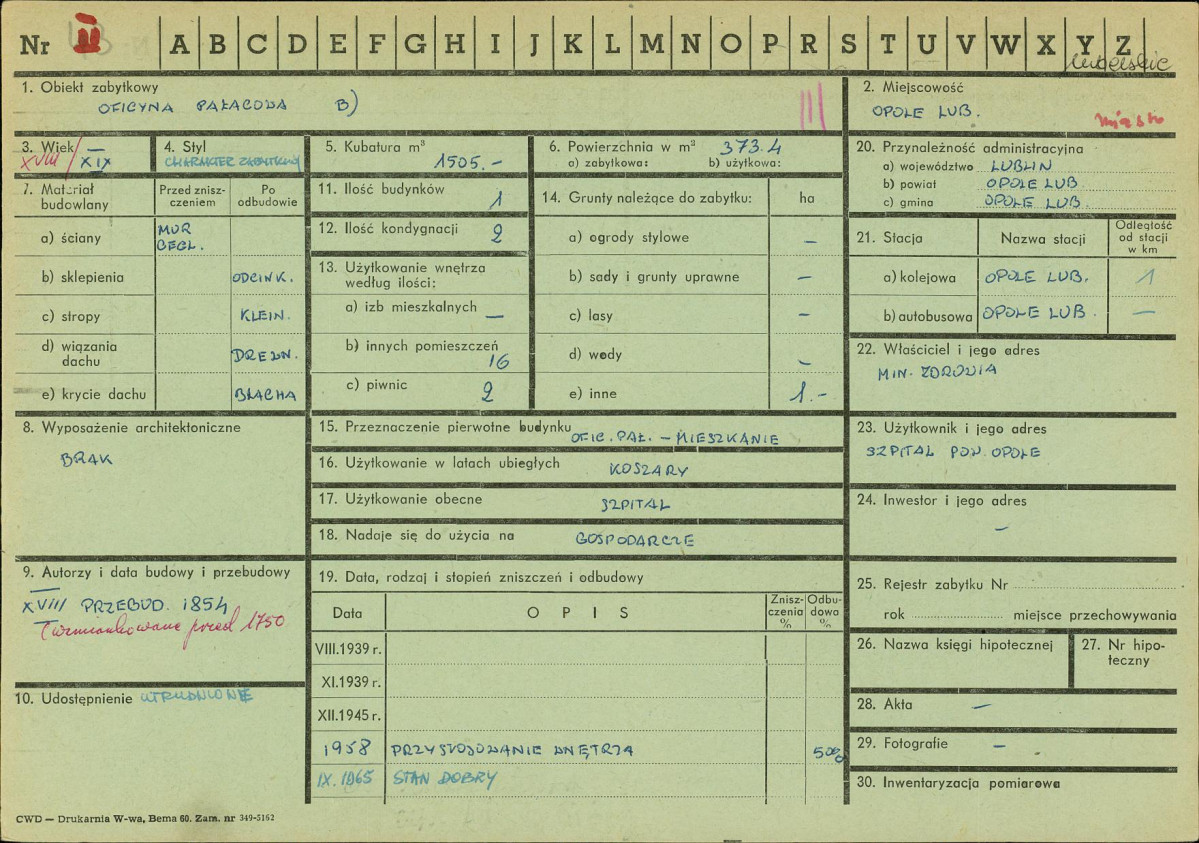 Nr II A B C D E F G H I J K L M N O P R S T U V W X Y Z
lubelskie
1. Obiekt zabytkowy
OFICYNA PAŁACOWA B)
III
2. Miejscowość
OPOLE LUB.
miasto
3. Wiek
XVIII/XIX
4. Styl
CHARAKTER ZABYTKOWY
5. Kubatura m³
1505.-
6. Powierzchnia w m² 373.4
a) zabytkowa: b) użytkowa:
7. Materiał budowlany
Przed zniszczeniem
Po odbudowie
a) ściany MUR CEGL.
b) sklepienia ODCINK.
c) stropy KLEIN.
d) wiązania dachu DREWN.
e) krycie dachu BLACHA
8. Wyposażenie architektoniczne
BRAK
9. Autorzy i data budowy i przebudowy
XVIII PRZEBUD. 1854
(wzmiankowane przed 1750
10. Udostępnienie UTRUDNIONE
11. Ilość budynków 1
12. Ilość kondygnacji 2
13. Użytkowanie wnętrza według ilości:
a) izb mieszkalnych —
b) innych pomieszczeń 16
c) piwnic 2
14. Grunty należące do zabytku: ha
a) ogrody stylowe —
b) sady i grunty uprawne —
c) lasy —
d) wody —
e) inne 1.-
15. Przeznaczenie pierwotne budynku OFIC. PAŁ. – MIESZKANIE
16. Użytkowanie w latach ubiegłych KOSZARY
17. Użytkowanie obecne SZPITAL
18. Nadaje się do użycia na GOSPODARCZE
19. Data, rodzaj i stopień zniszczeń i odbudowy
Data OPIS Zniszczenia % Odbudowa %
VIII.1939 r.
XI.1939 r.
XII.1945 r.
1958 PRZYSTOSOWANIE WNĘTRZA 50%
IX.1965 STAN DOBRY
20. Przynależność administracyjna
a) województwo LUBLIN
b) powiat OPOLE LUB.
c) gmina OPOLE LUB.
21. Stacja Nazwa stacji Odległość od stacji w km
a) kolejowa OPOLE LUB. 1
b) autobusowa OPOLE LUB. —
22. Właściciel i jego adres
MIN. ZDROWIA
23. Użytkownik i jego adres
SZPITAL POW. OPOLE
24. Inwestor i jego adres
—
25. Rejestr zabytku Nr
rok miejsce przechowywania
26. Nazwa księgi hipotecznej
27. Nr hipoteczny
28. Akta —
29. Fotografie —
30. Inwentaryzacja pomiarowa
CWD — Drukarnia W-wa, Bema 60. Zam. nr 349-5162